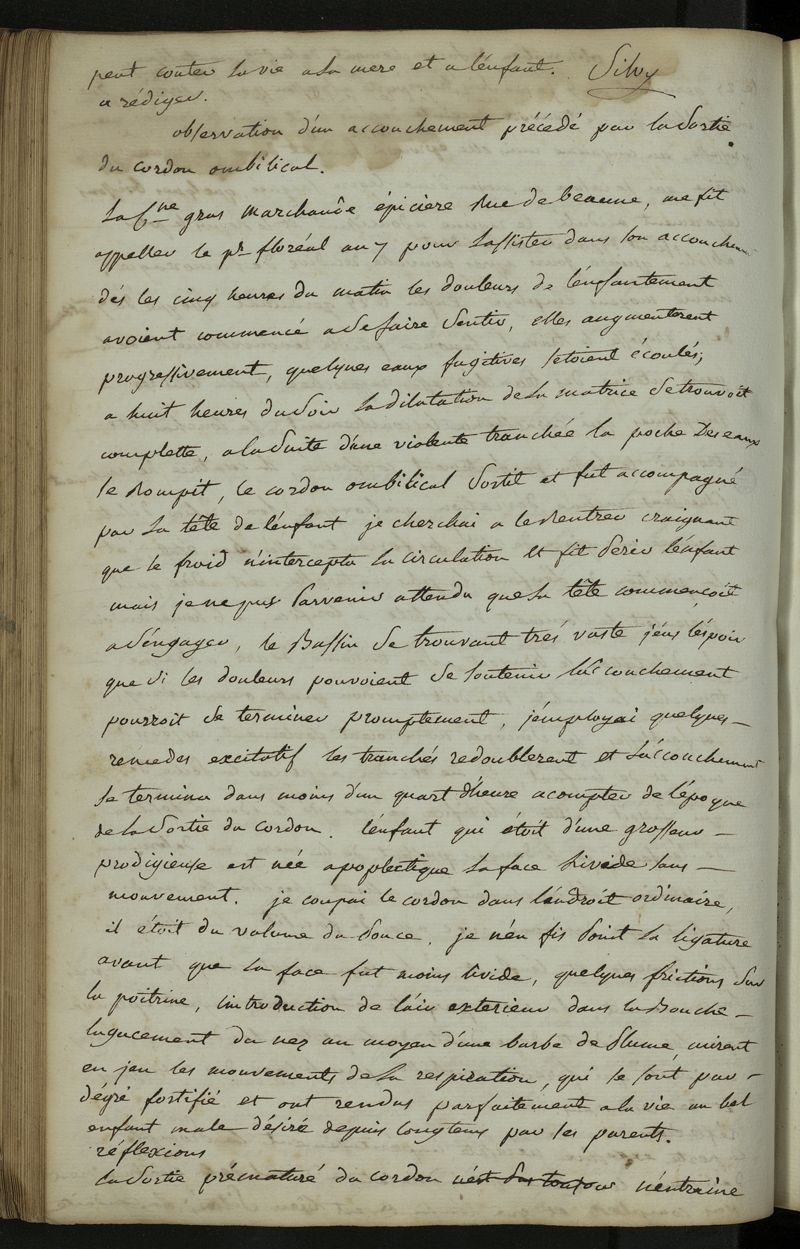 peut couter la vie a la mere et a l'enfant. Silvy
a rédiger.
observation d'un accouchement précédé par la sortie
du cordon ombilical.
La C.ne gras marchande épiciere rue de beaune, me fit
appeller le p.r floréal an 7 pour l'assister dans son accouchem
dés les cinq heures du matin les douleurs de l'énfantement
avoient commencé a se faire sentir, elles augmenterent
progressivement, quelques eaux fugitives s'etoient écoulés;
a huit heures du soir la dilatation de la matrice se trouvoit
complette, a la suite d'une violente tranchée la poche des eaux
se rompit, le cordon ombilical sortit et fut accompagné
par la tête de l'énfant je cherchai a le rentrer craignant
que le froid n'intercepta la circulation et fit perir l'énfant
mais je ne pus parvenir attendu que la tête commençoit
a s'éngager, le Bassin se trouvant trés vaste j'éus l'éspoir
que si les douleurs pouvoient se soutenir l'accouchement
pourroit se terminer promptement, j'émployai quelques
remedes excitatif les tranchés redoublerent et l'accouchement
se termina dans moins d'un quart d'heure a compter de l'époque
de la sortie du cordon. l'énfant qui étoit d'une grosseur
prodigieuse est née apoplectique la face livide sans
mouvement. je coupai le cordon dans l'éndroit ordinaire,
il étoit du volume du pouce, je n'én fis point la ligature
avant que la face fut moins livide, quelques frictions sur
la poitrine, introduction de l'air exterieur dans la Bouche
l'agacement du nez au moyen d'une barbe de plume, mirent
en jeu les mouvements de la respiration, qui se sont par
dégré fortifié et ont rendus parfaitement a la vie un bel
enfant male désiré depuis longtems par les parents.
réflexions
la sortie prématuré du cordon n'ést pas toujour n'éntraine